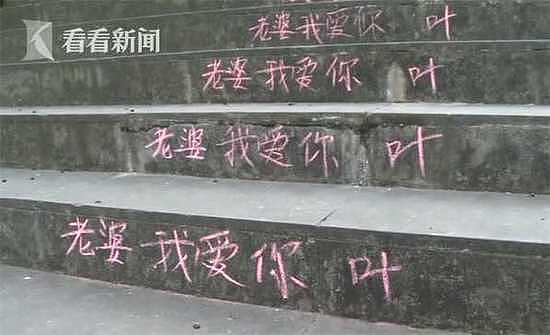 看看新闻
老婆我爱你 叶
老婆我爱你 叶
老婆我爱你 叶
老婆我爱你 叶